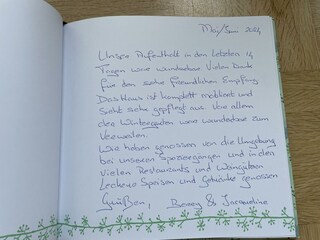 Mai/Juni 2024
Unser Aufenthalt in den letzten 14
Tagen ware wunderbar. Vielen Dank
für den sehr freundlichen Empfang
Das Haus ist komplett mobliert und
Sieht sehr gepflegt aus. Vor allem
den Wintergarten ware wunderbar zum
Verweilen.
Wir haben genossen von die Umgebung
bei unseren Spaziergangen und in den
vielen Restaurants und Weinguten
Leckere Speisen und Getränke genossen
Grüßen, & Jacqueline